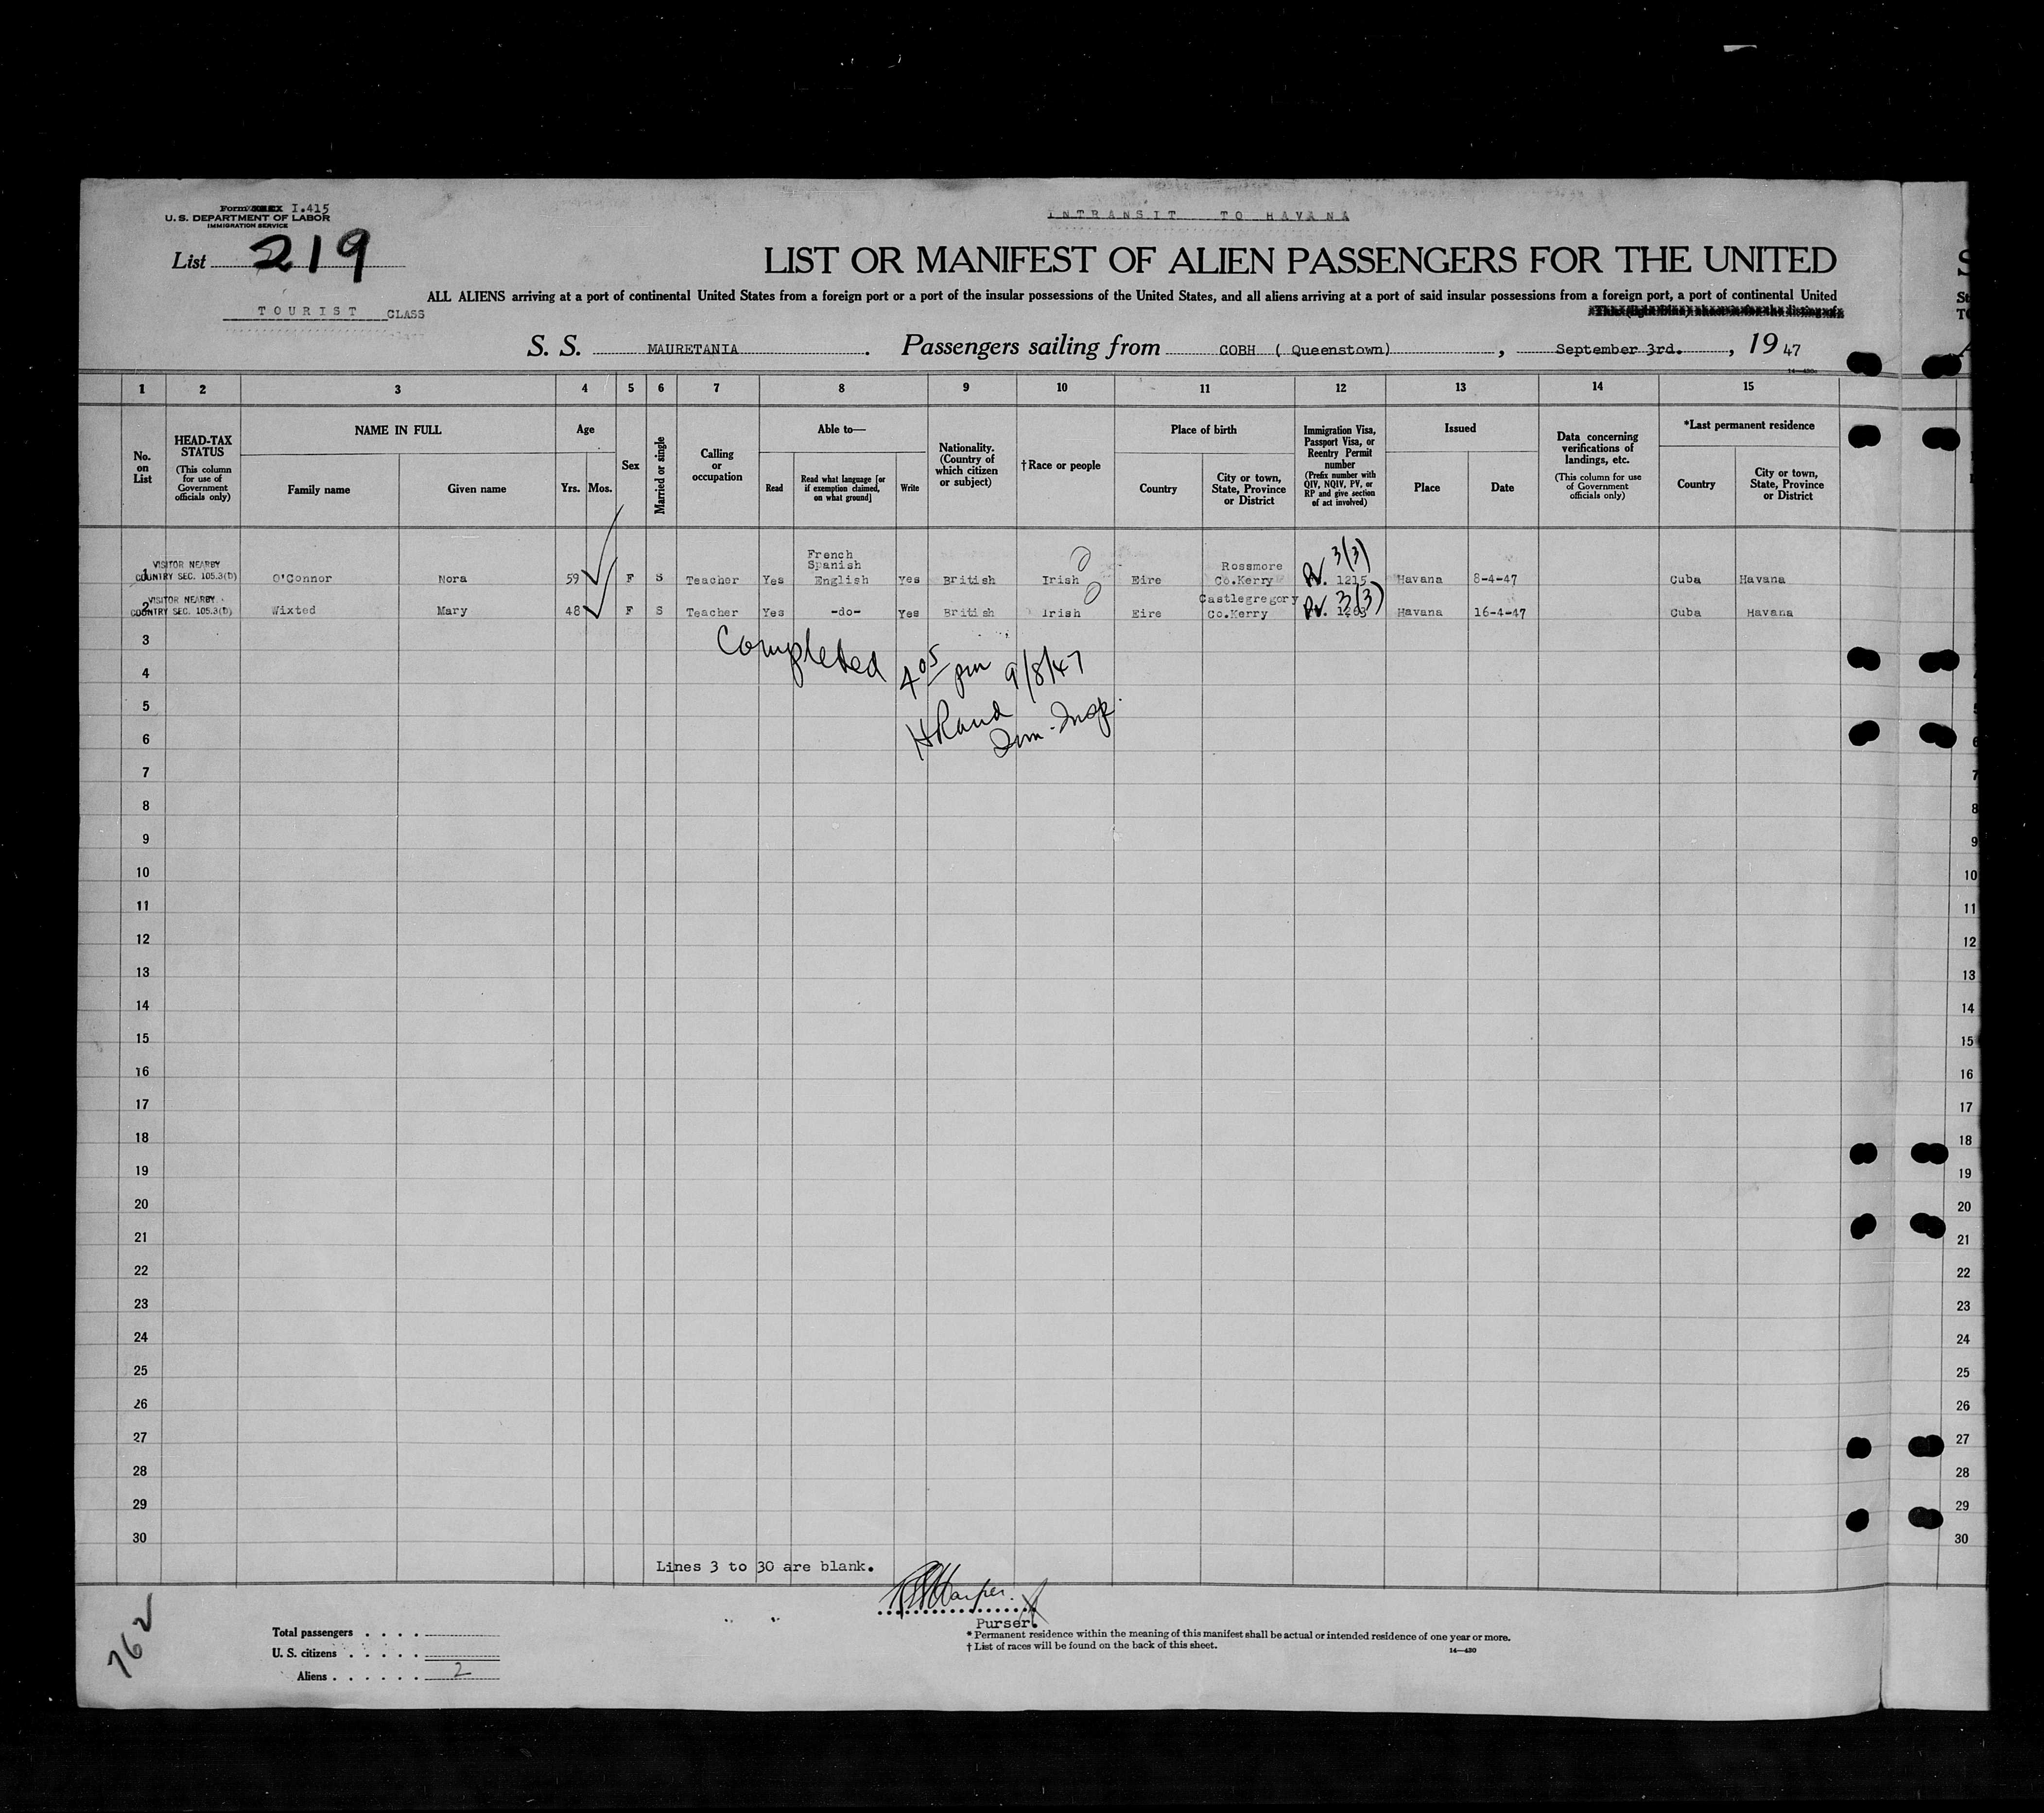 Form I.415
U. S. DEPARTMENT OF LABOR
IMMIGRATION SERVICE
INTRANSIT TO HAVANA
List 219
LIST OR MANIFEST OF ALIEN PASSENGERS FOR THE UNITED
TOURIST CLASS
ALL ALIENS arriving at a port of continental United States from a foreign port or a port of the insular possessions of the United States, and all aliens arriving at a port of said insular possessions from a foreign port, a port of continental United
S. S. MAURETANIA. Passengers sailing from COBH ( Queenstown), September 3rd., 1947
14—430
1 2 3 4 5 6 7 8 9 10 11 12 13 14 15
No. on List
HEAD-TAX STATUS
(This column for use of Government officials only)
NAME IN FULL
Family name
Given name
Age
Yrs. Mos.
Sex
Married or single
Calling or occupation
Able to—
Read
Read what language [or if exemption claimed, on what ground]
Write
Nationality. (Country of which citizen or subject)
†Race or people
Place of birth
Country
City or town, State, Province or District
Immigration Visa, Passport Visa, or Reentry Permit number
(Prefix number with QIV, NQIV, PV, or RP and give section of act involved)
Issued
Place
Date
Data concerning verifications of landings, etc.
(This column for use of Government officials only)
*Last permanent residence
Country
City or town, State, Province or District
VISITOR NEARBY
COUNTRY SEC. 105.3(D)
1 O'Connor Nora 59 F S Teacher Yes French Spanish English Yes British Irish Eire Rossmore Co.Kerry 3(3) 1215 Havana 8-4-47 Cuba Havana
VISITOR NEARBY
COUNTRY SEC. 105.3(D)
2 Wixted Mary 48 F S Teacher Yes -do- Yes British Irish Eire Castlegregory Co.Kerry 3(3) 1263 Havana 16-4-47 Cuba Havana
3
Completed 4 05 pm 9/8/47
4
5
HRand
Imm. Insp.
6
7
8
9
10
11
12
13
14
15
16
17
18
19
20
21
22
23
24
25
26
27
28
29
30
Lines 3 to 30 are blank.
Harper
Purser.
* Permanent residence within the meaning of this manifest shall be actual or intended residence of one year or more.
† List of races will be found on the back of this sheet.
14—430
Total passengers
U. S. citizens
Aliens 2
6
7
8
9
10
11
12
13
14
15
16
17
18
19
20
21
22
23
24
25
26
27
28
29
30